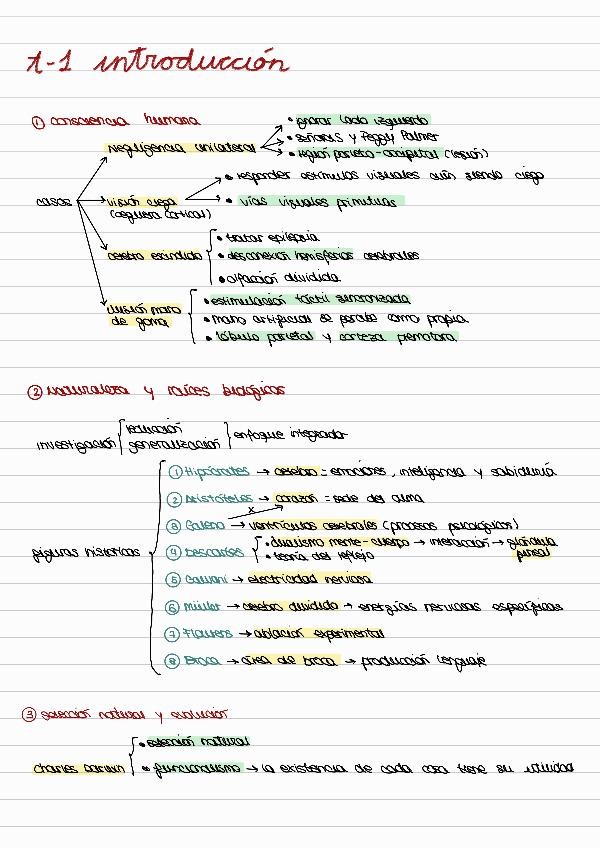 1-1 introducción
① consciencia humana
• ignorar lado izquierdo
Negligencia unilateral
• señora S y Peggy Palmer
• región parieto-occipital (lesión)
• responder estímulos visuales aún siendo ciego
casos
visión ciega
• vías visuales primitivas
(ceguera cortical)
• tratar epilepsia
cerebro escindido
• desconexión hemisferios cerebrales
• olfacción dividida
• estimulación táctil sincronizada
ilusión mano
de goma
• mano artificial se percibe como propia
• lóbulo parietal y corteza premotora
② Naturaleza y raíces biológicas
investigación
reducción
generalización
enfoque integrador
figuras históricas
① Hipócrates → cerebro = emociones, inteligencia y sabiduría
② Aristóteles → corazón = sede del alma
x
③ Galeno → ventrículos cerebrales (procesos psicológicos)
④ Descartes
• dualismo mente-cuerpo → interacción → glándula
pineal
• teoría del reflejo
⑤ Galvani → electricidad nerviosa
⑥ Müller → cerebro dividido → energías nerviosas específicas
⑦ Flourens → ablación experimental
⑧ Broca → área de broca → producción lenguaje
③ selección natural y evolución
• selección natural
Charles Darwin
• funcionalismo → la existencia de cada cosa tiene su utilidad